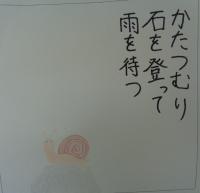 かたつむり
石を登って
雨を待つ